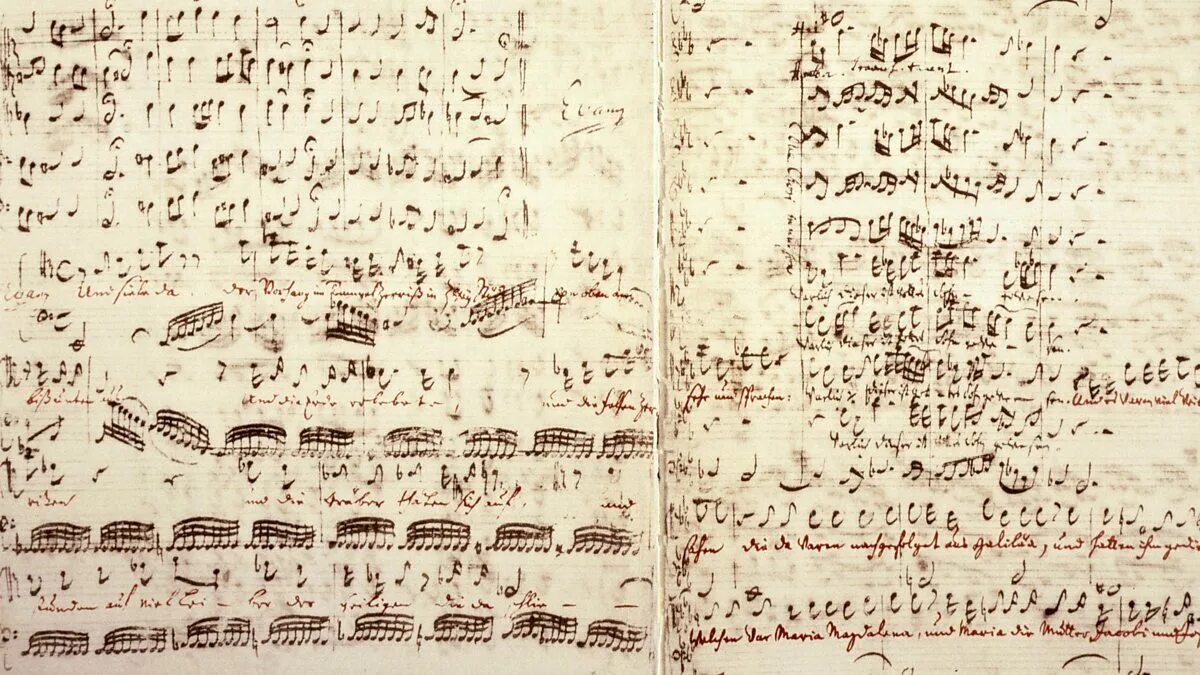 Evang
Evang Und siehe da. der Vorhang im Tempel zerriß in zwey Stück von oben an
biß unten aus Und die Erde erbebete und die Felsen zer
rißen und die Gräber thaten sich auf, und
stunden auf viel Lei - ber der Heiligen die da schlie - -
Warlich dieser ist Gottes Sohn gewesen.
Warlich dieser ist Gottes Sohn gewe - sen.
sehr und sprachen: Warlich dieser ist Gottes Sohn gewesen. Und es waren viel Wei
Warlich dieser ist Gottes Sohn gewesen.
die da waren nachgefolget aus Galiläa, und hatten ihm gedie
Welchen war Maria Magdalena, und Maria die Mutter Jacobi und Jo